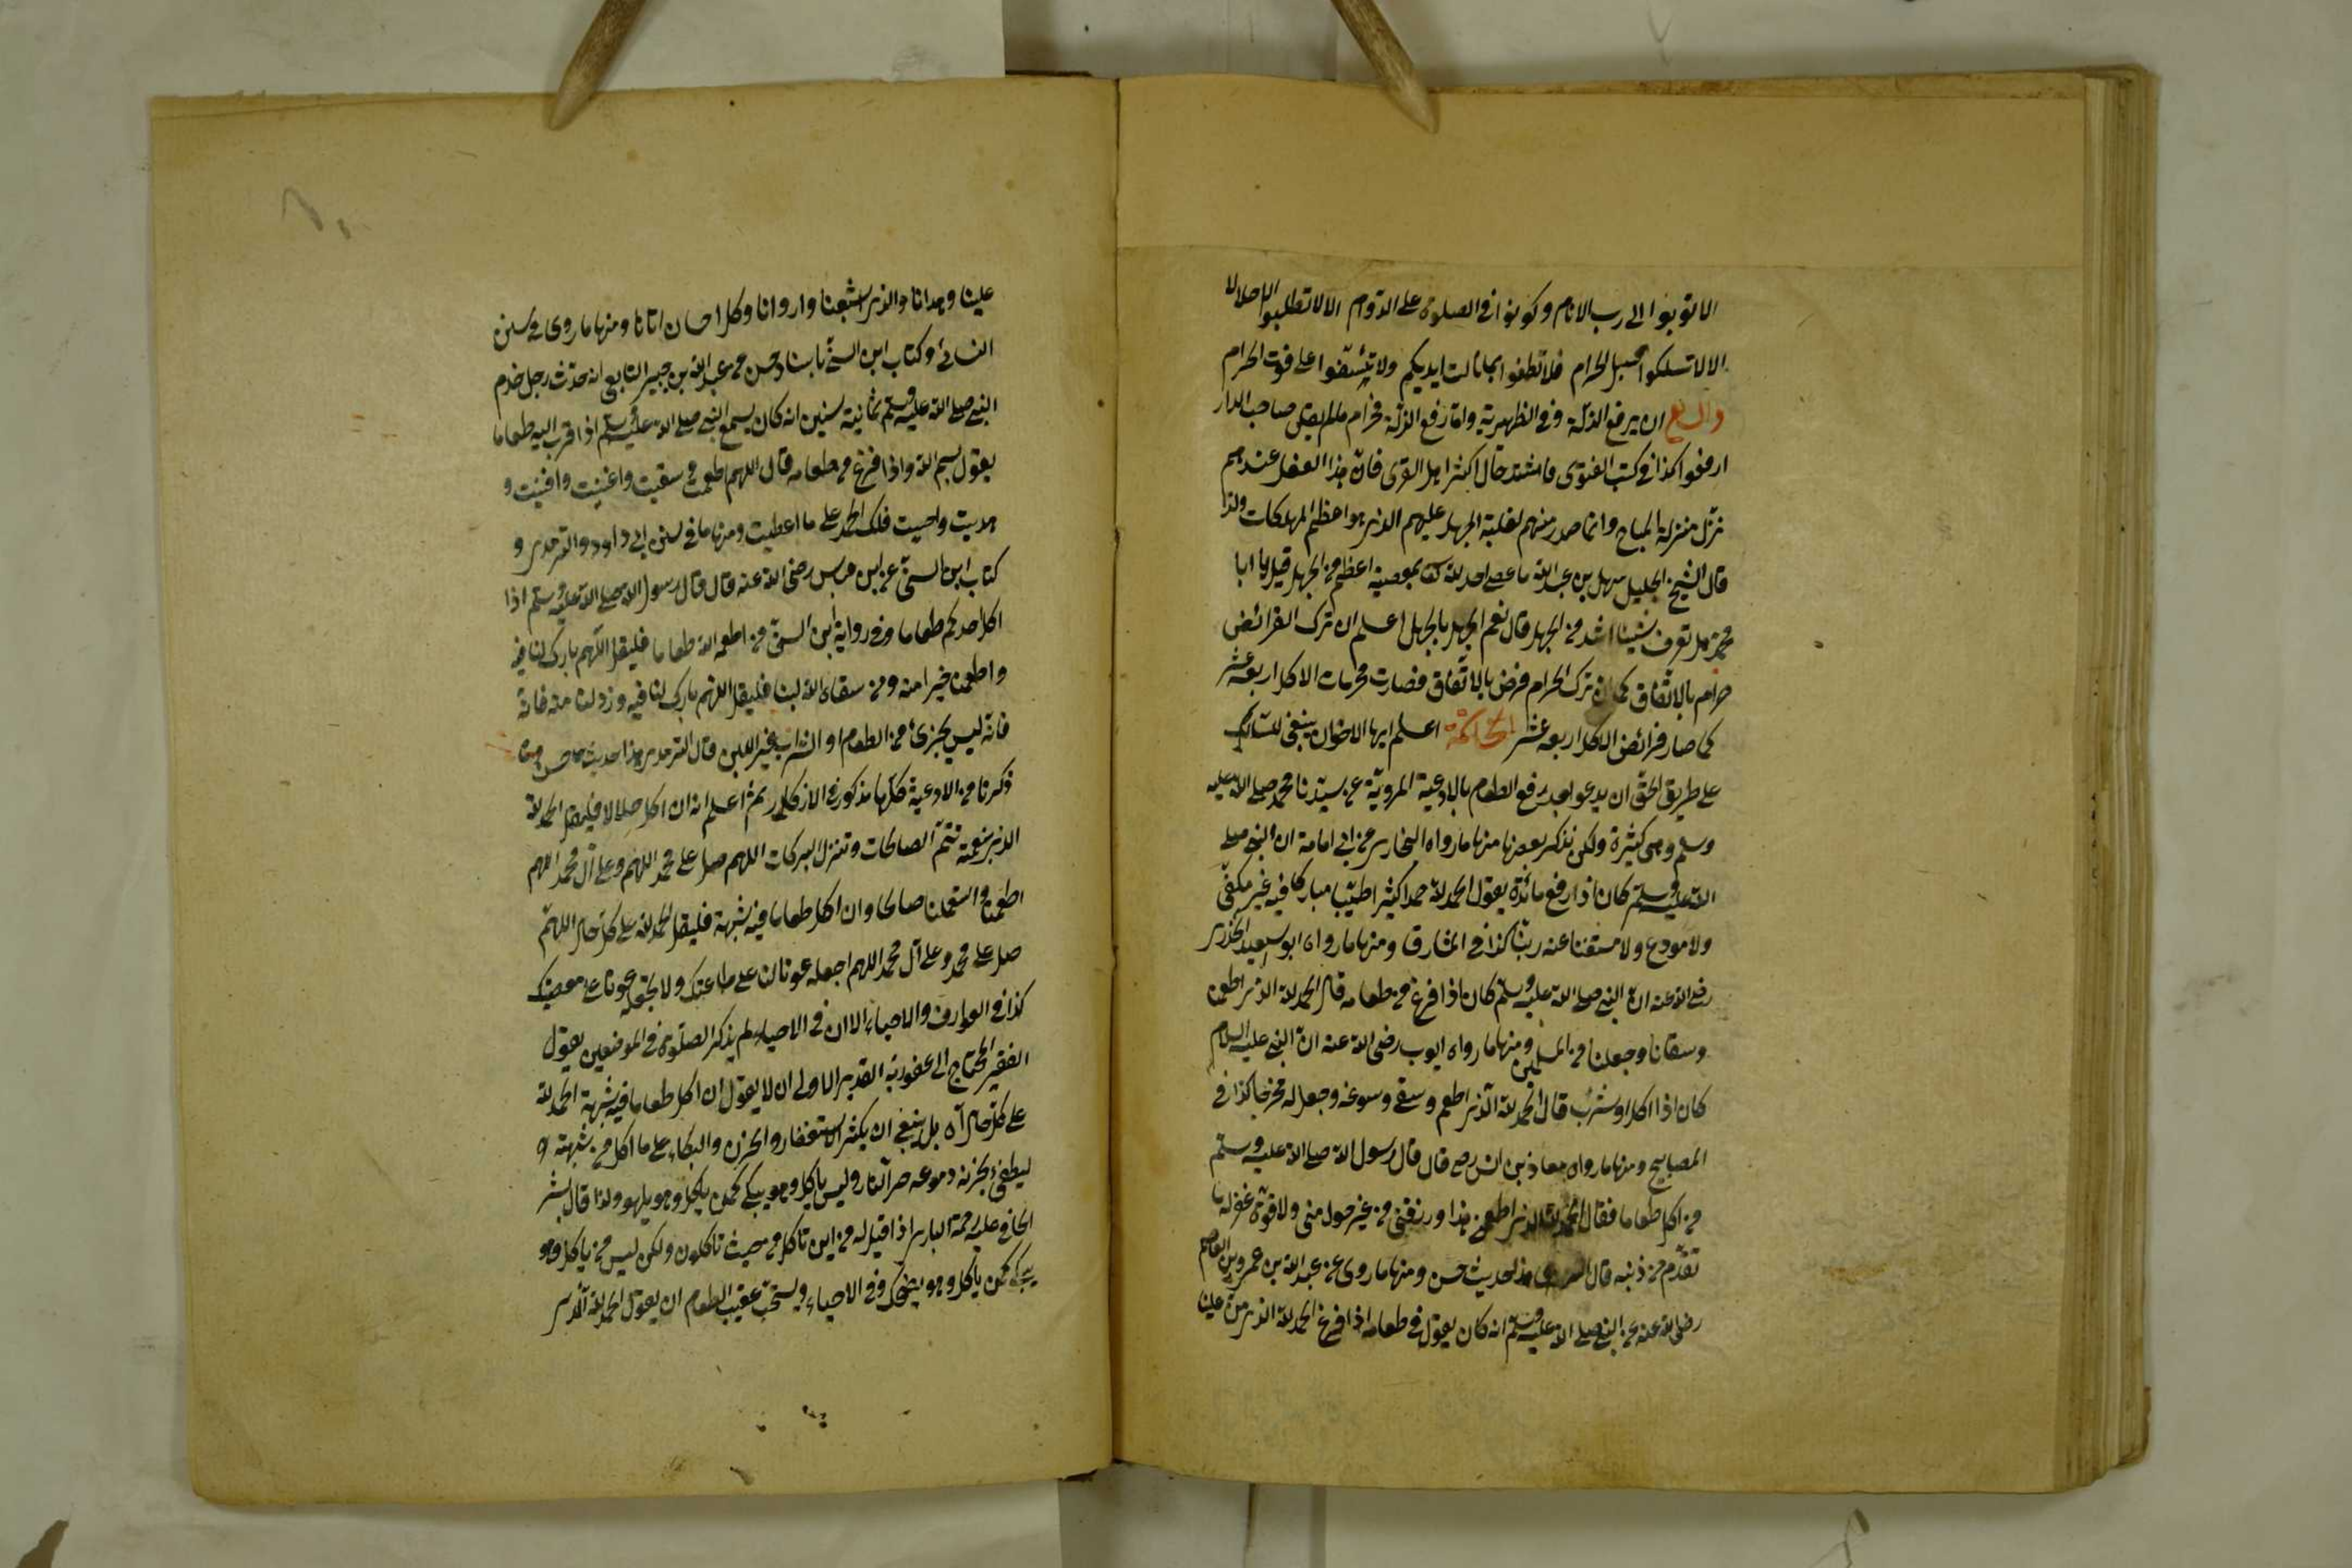 الا توبوا الى رب الانام وكونوا في الصلوة على الدوام الا لا تطلبوا الا حلالا
الا لا تسلكوا سبل الحرام فلا تطغوا بما نالت ايديكم ولا على فوت الحرام
ان يرفع الذلة وفي الظهيرية واما رفع الزلة فحرام ما لم يقل صاحب الدار
ارفعوا كذا في كتب الفتوى فاشتد حال اكثر اهل القرى فان هذا الفعل عندهم
نزل منزلة المباح وانما صدر منهم لغلبة الجهل عليهم الذي هو اعظم المهلكات ولذا
قال الشيخ الجليل سهل بن عبد الله ما عصى احد لله تعا بمعصية اعظم من الجهل قيل يا ابا
محمد هل تعرف شيئا اشد من الجهل قال نعم الجهل بالجهل اعلم ان ترك الفرائض
حرام بالاتفاق كما ان ترك الحرام فرض بالاتفاق فصارت محرمات الاكل اربعة عشر
كما صار فرائض الاكل اربعة عشر الخاتمة اعلم ايها الاخوان ينبغي للسالك
على طريق الحق ان يدعو بعد رفع الطعام بالادعية المروية عن سيدنا محمد صلى الله عليه
وسلم وهي كثيرة ولكن نذكر بعضها منها ما رواه البخاري عن ابي امامة ان النبي صلى
الله عليه وسلم كان اذا رفع مائدة يقول الحمد لله حمدا كثيرا طيبا مباركا فيه غير مكفي
ولا مودع ولا مستغنا عنه ربنا كذا في المشارق ومنها ما رواه ابو سعيد الخدري
رضي الله عنه ان النبي صلى الله عليه وسلم كان اذا فرغ من طعامه قال الحمد لله الذي اطعمنا
وسقانا وجعلنا من المسلمين ومنها ما رواه ايوب رضي الله عنه ان النبي عليه السلام
كان اذا اكل او شرب قال الحمد لله الذي اطعم وسقى وسوغه وجعل له مخرجا كذا في
المصابيح ومنها ما رواه معاذ بن انس رض قال قال رسول الله صلى الله عليه وسلم
من اكل طعاما فقال الحمد لله الذي اطعمني هذا ورزقني من غير حول مني ولا قوة غفر له ما
تقدم من ذنبه قال الترمذي هذا حديث حسن ومنها ما روى عن عبد الله بن عمرو بن العاص
رضي الله عنه عن النبي صلى الله عليه وسلم انه كان يقول في طعامه اذا فرغ الحمد لله الذي من علينا
علينا وهدانا والذي اشبعنا واروانا وكل احسان اتانا ومنها ما روى في سنن
النسائي وكتاب ابن السني باسناد حسن عن عبد الله بن جبير التابعي انه حدث رجل خدم
النبي صلى الله عليه وسلم ثمانية سنين انه كان يسمع النبي صلى الله عليه وسلم اذا قرب اليه طعاما
يقول بسم الله واذا فرغ من طعامه قال اللهم اطعمت وسقيت واغنيت واقنيت و
هديت واحييت فلك الحمد على ما اعطيت ومنها ما في سنن ابي داود والترمذي و
كتاب ابن السني عن ابن عباس رضي الله عنه قال قال رسول الله صلى الله عليه وسلم اذا
اكل احدكم طعاما وفي رواية ابن السني من اطعمه الله طعاما فليقل اللهم بارك لنا فيه
واطعمنا خيرا منه ومن سقاه الله لبنا فليقل اللهم بارك لنا فيه وزدنا منه فانه
فانه ليس يجزئ من الطعام او الشراب غير اللبن قال الترمذي هذا حديث حسن
ذكرنا من الادعية كلها مذكور في الاذكار ثم اعلم انه ان اكل حلالا فليقل الحمد لله
الذي بنعمته تتم الصالحات وتنزل البركات اللهم صل على محمد اللهم وعلى آل محمد اللهم
اطعمنا واستعملنا صالحا وان اكل طعاما فيه شبهة فليقل الحمد لله على كل حال اللهم
صل على محمد وعلى آل محمد اللهم اجعله عونا لنا على طاعتك ولا تجعله عونا على معصيتك
كذا في العوارف والاحياء الا ان في الاحياء لم يذكر الصلوة في الموضعين يقول
الفقير المحتاج الى عفو ربه القدير الاولى ان لا يقول ان اكل طعاما فيه شبهة الحمد لله
على كل حال آه بل ينبغي ان يكثر الاستغفار والحزن والبكاء على ما اكل من شبهة و
ليطفئ بحزنه ودموعه حر النار وليس من ياكل وهو يبكي كمن ياكل وهو يلهو ولذا قال بشر
الحافي عليه رحمة الباري اذا قيل له من اين تاكل من حيث تاكلون ولكن ليس من ياكل وهو
يبكي كمن ياكل وهو يضحك وفي الاحياء ويستحب عقيب الطعام ان يقول الحمد لله الذي